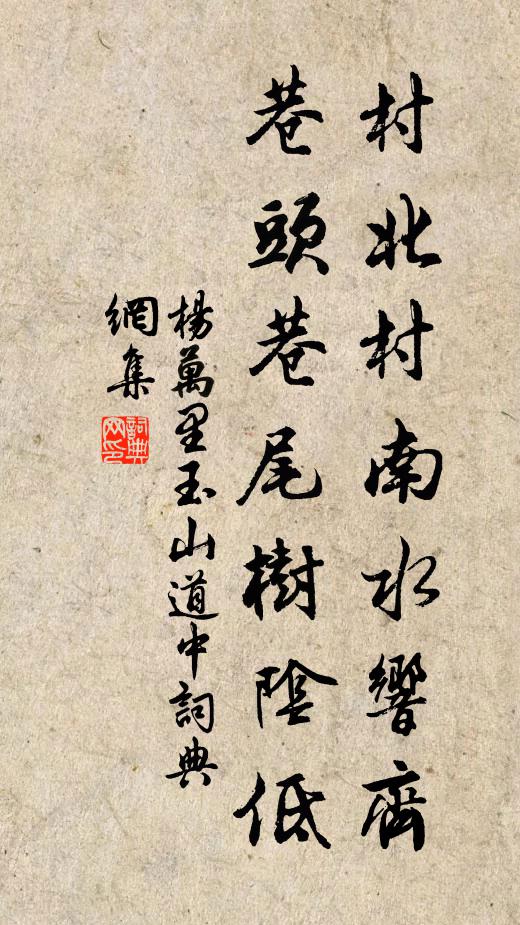 村北村南水響齊
巷頭巷尾樹陰低
楊萬里玉山道中詞典
網集
詞典
网印